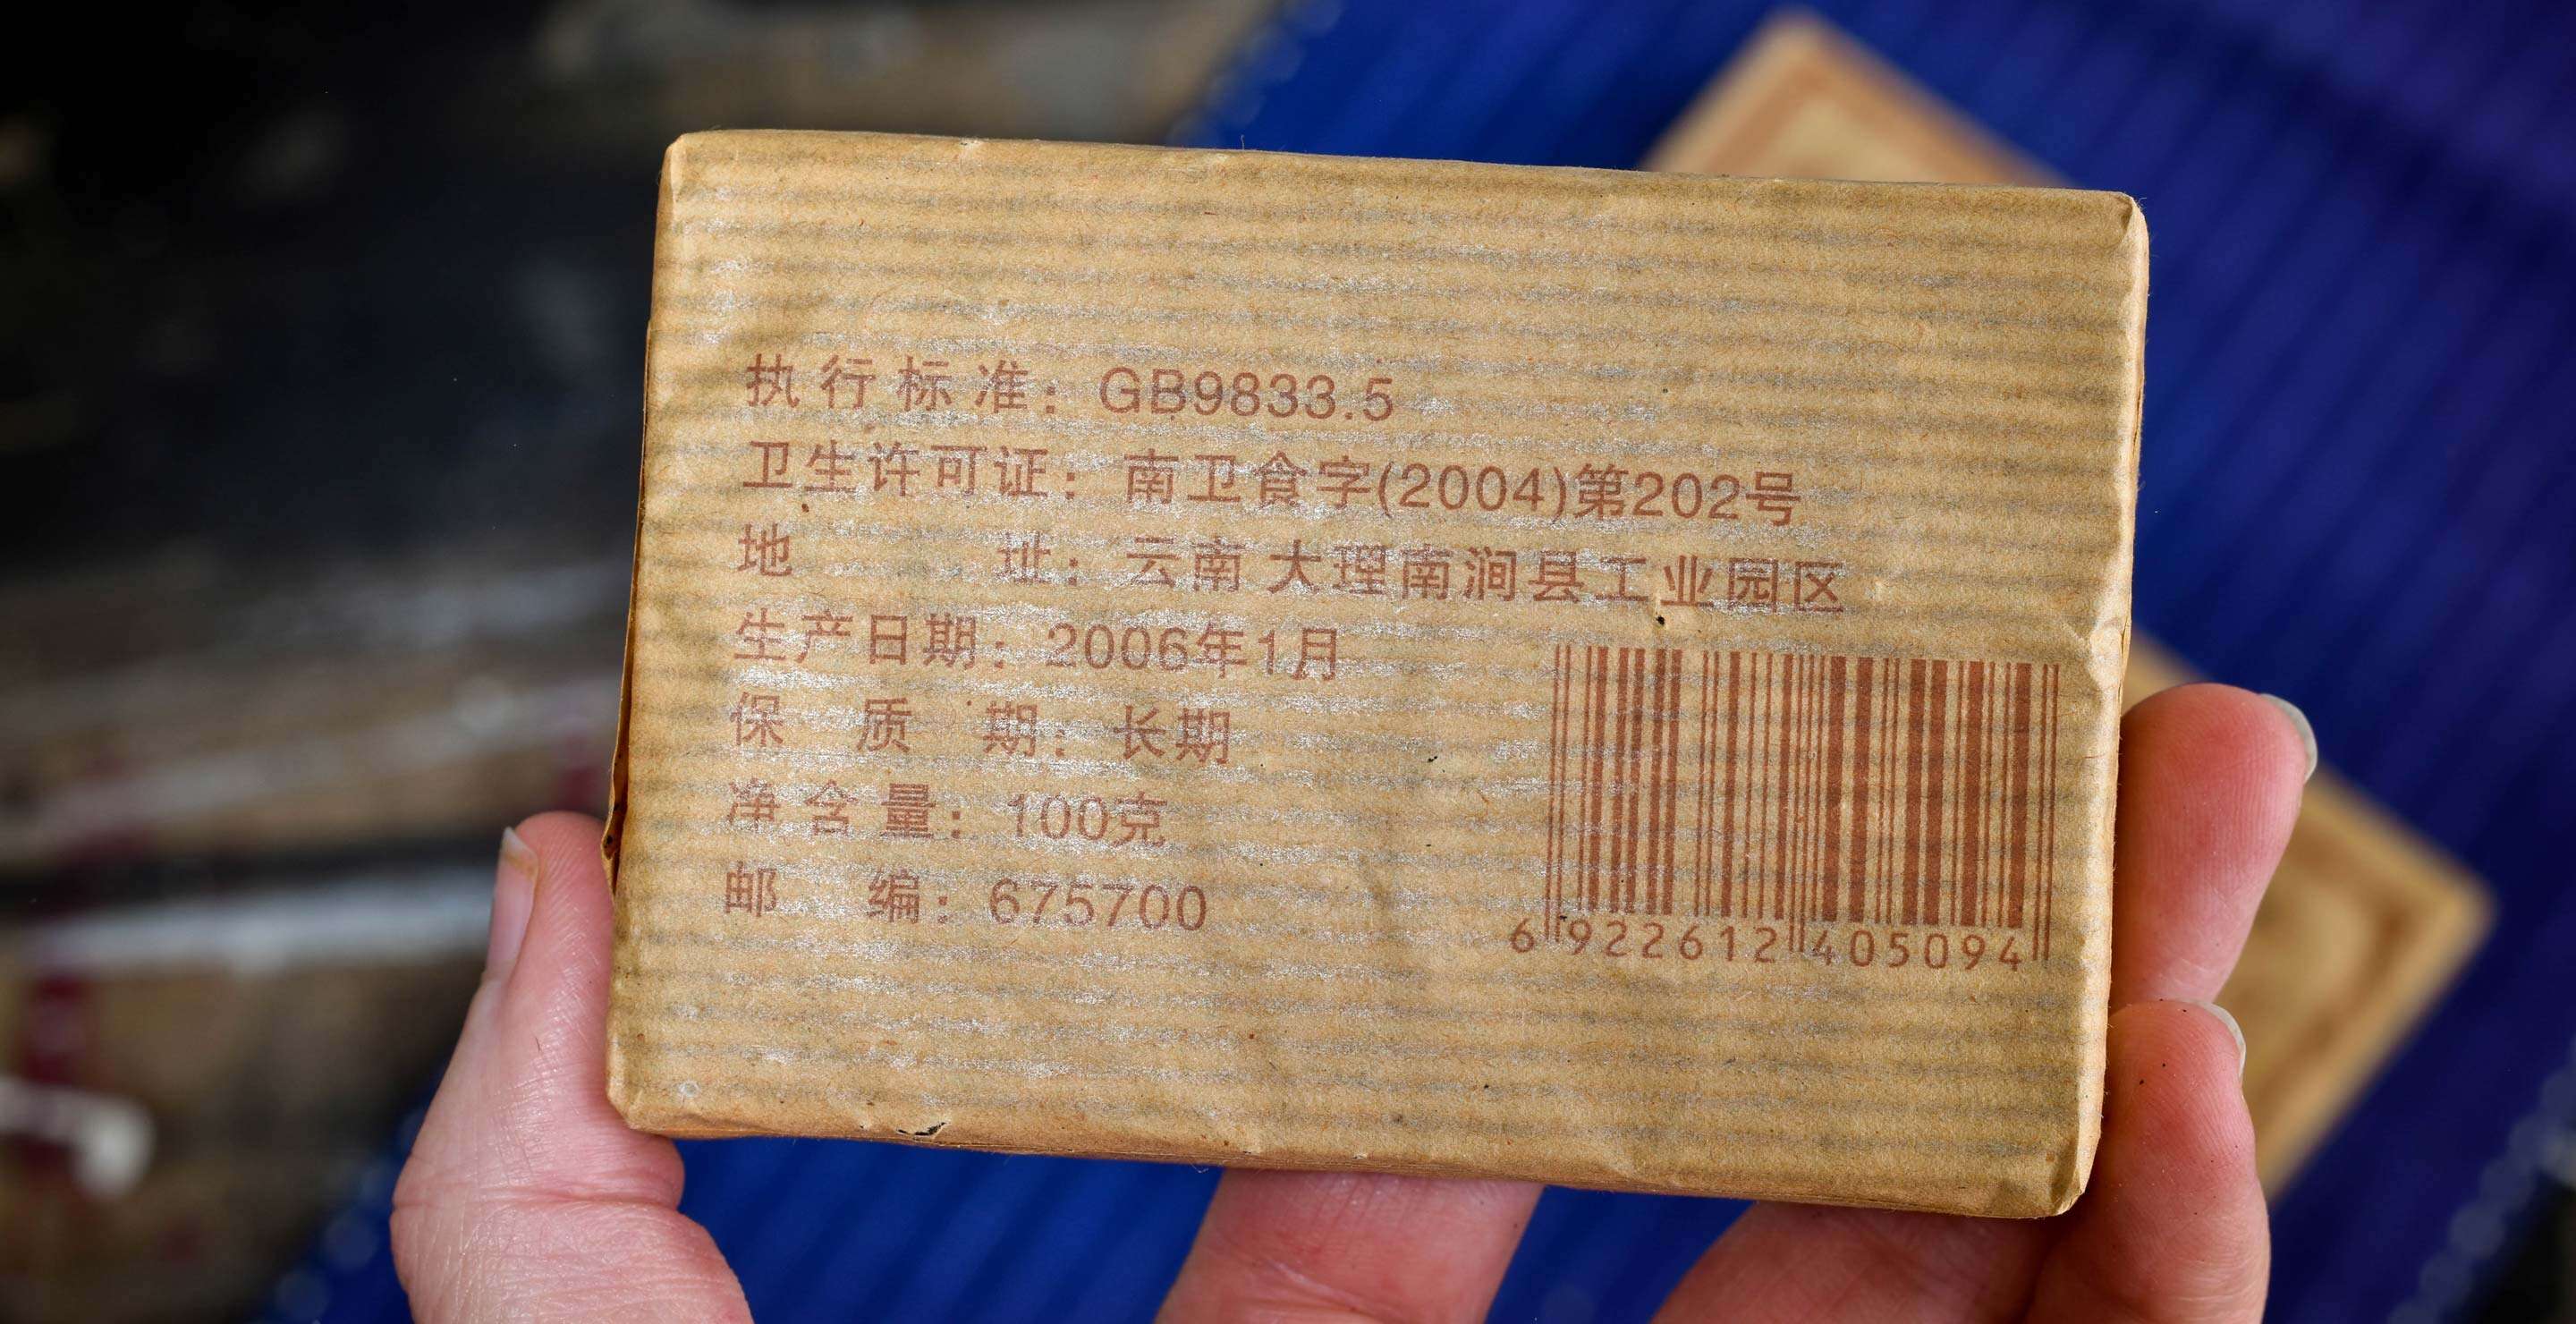 执行标准：GB9833.5
卫生许可证：南卫食字(2004)第202号
地址：云南大理南涧县工业园区
生产日期：2006年1月
保质期：长期
净含量：100克
邮编：675700
6 922612 405094